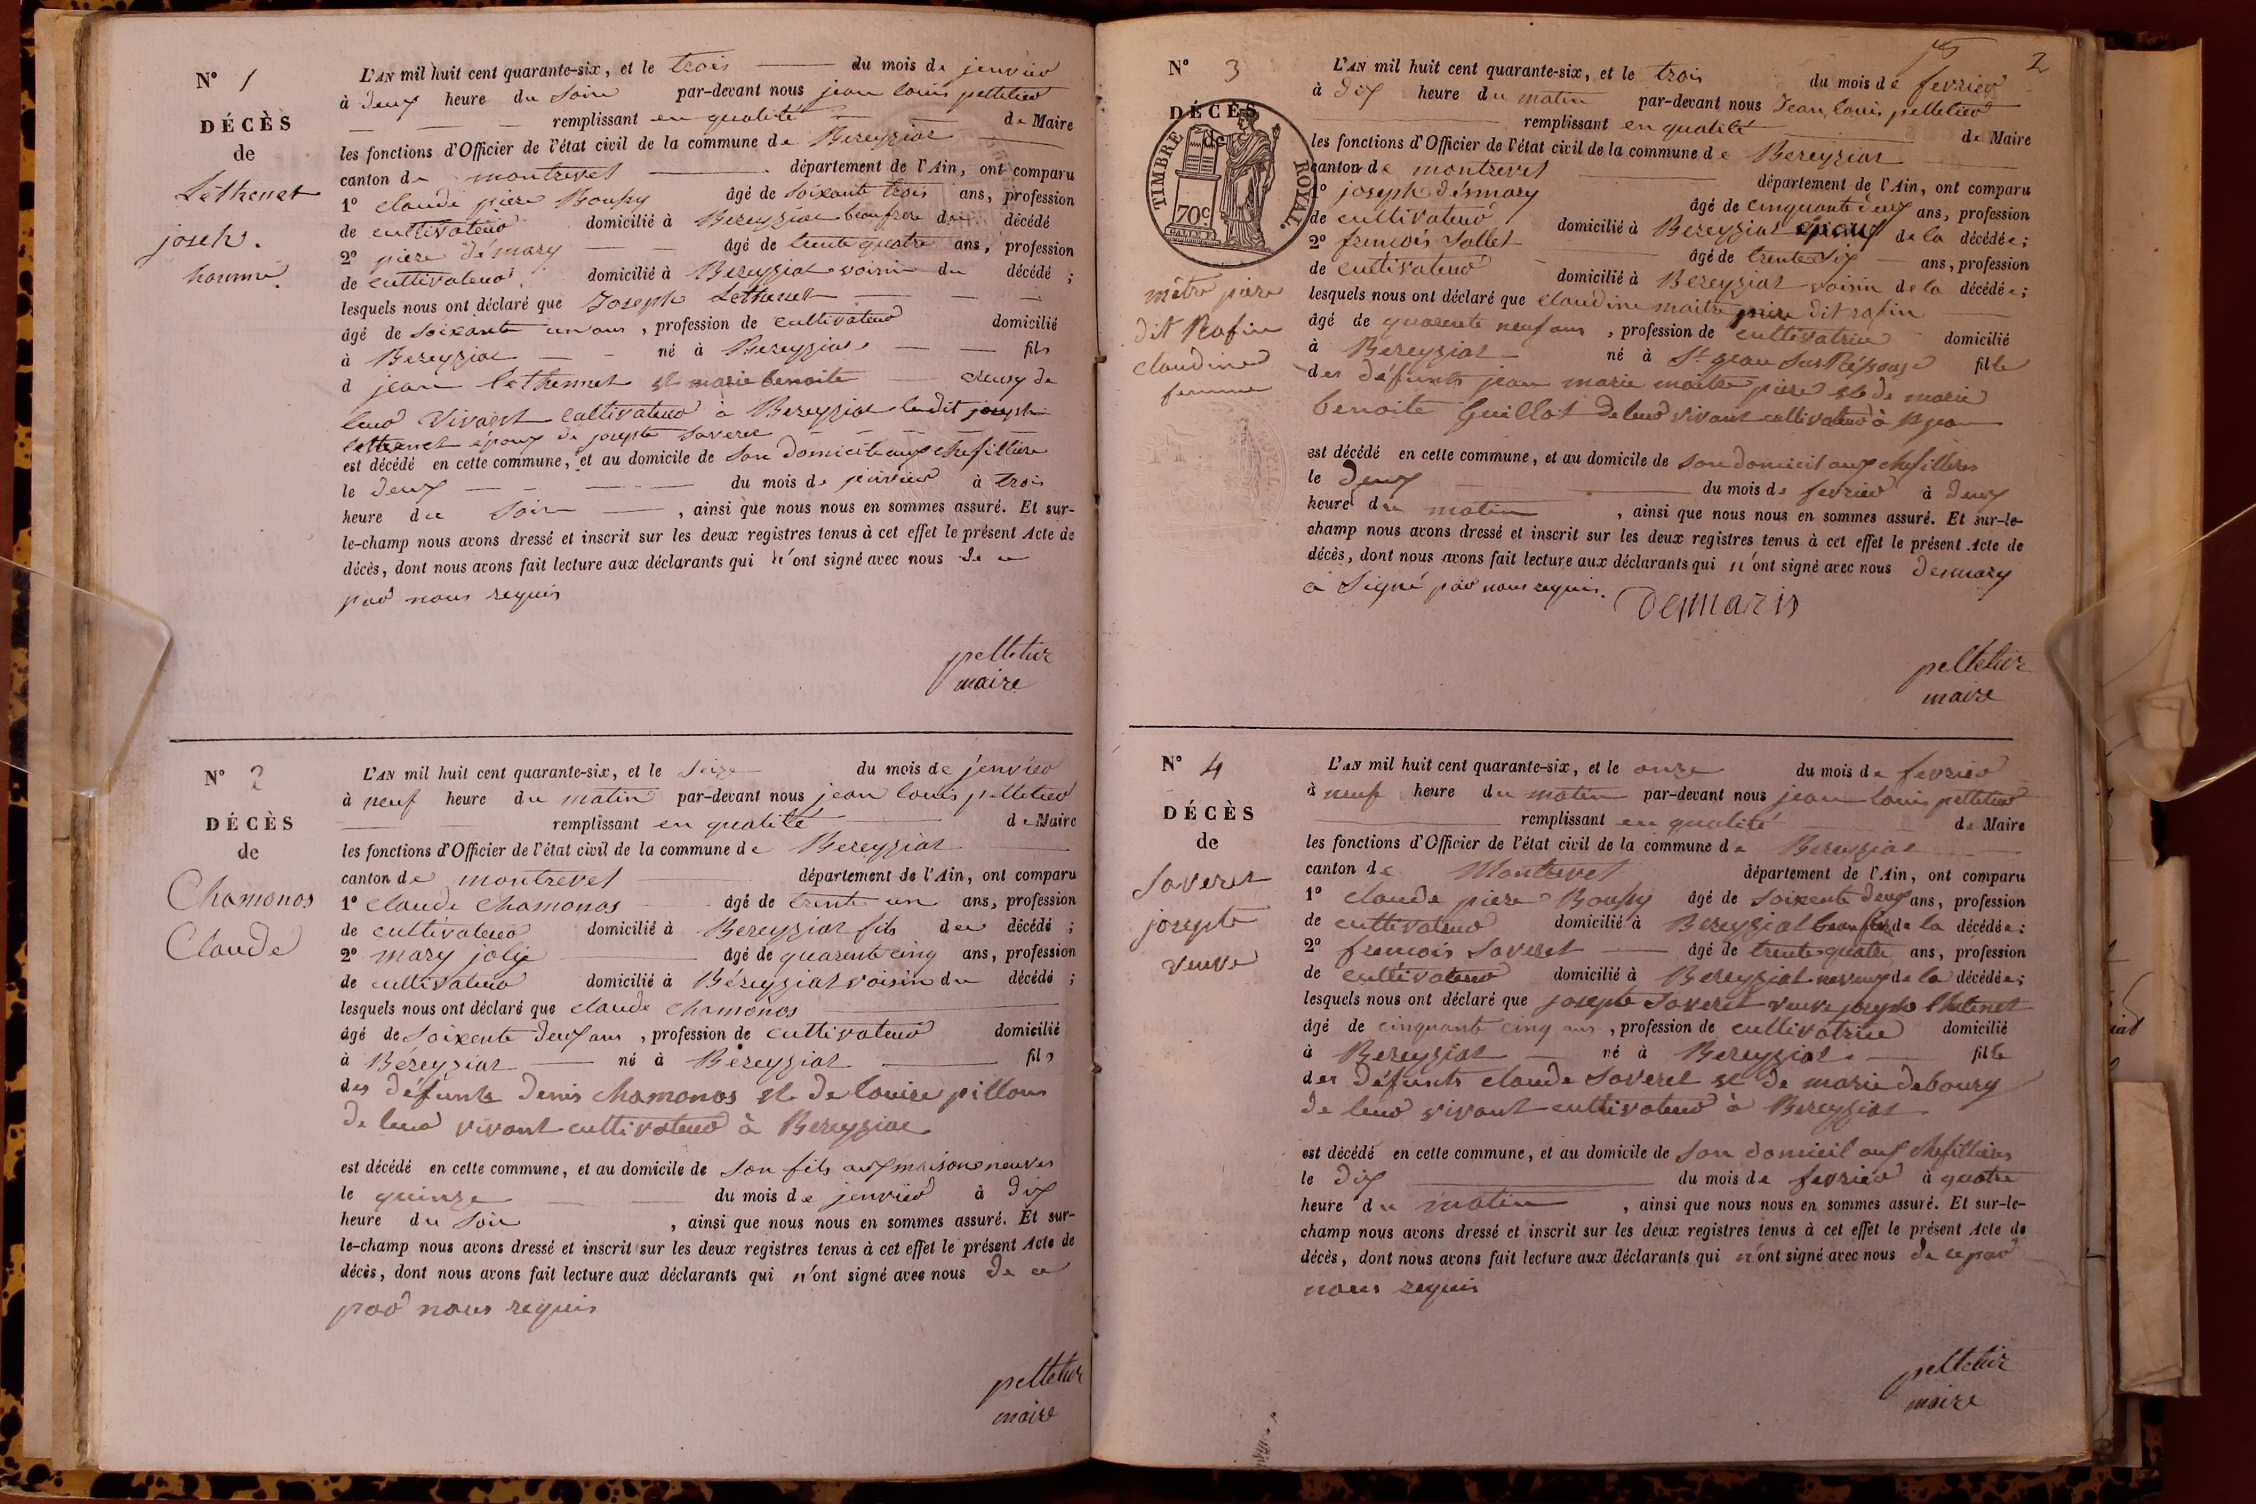 N° 1
DÉCÈS
de
Lethenet
joseh.
homme.
L'AN mil huit cent quarante-six, et le trois du mois de jenvier
à deux heure du Soire par-devant nous jean louis pelletier
remplissant en qualité de Maire
les fonctions d'Officier de l'état civil de la commune de Bereyziat
canton de montrevel département de l'Ain, ont comparu
1° claude piere Boussy âgé de Soixante trois ans, profession
de cultivateur domicilié à Bereyziat beaufrere du décédé
2° piere démary âgé de trente quatre ans, profession
de cultivateur domicilié à Bereyziat voisin du décédé ;
lesquels nous ont déclaré que Joseph Lethenet
âgé de soixante un ans, profession de cultivateur domicilié
à Bereyziat né à Bereyziat fils
d jean lethennet et marie benoite de
leur vivant cultivateur à Bereyziat ledit joseph
lethenet époux de josepte Saveret
est décédé en cette commune, et au domicile de Son domicile aux chefillière
le deux du mois de jenvier à trois
heure du Soir, ainsi que nous nous en sommes assuré. Et sur-
le-champ nous avons dressé et inscrit sur les deux registres tenus à cet effet le présent Acte de
décès, dont nous avons fait lecture aux déclarants qui n'ont signé avec nous de ce
par nous requis
pelletier
maire
N° 2
DÉCÈS
de
Chamonos
Claude
L'AN mil huit cent quarante-six, et le Seize du mois de jenvier
à neuf heure du matin par-devant nous jean louis pelletier
remplissant en qualité de Maire
les fonctions d'Officier de l'état civil de la commune de Bereyziat
canton de montrevel département de l'Ain, ont comparu
1° claude chamonos âgé de trente un ans, profession
de cultivateur domicilié à Bereyziat fils du décédé ;
2° mary joly âgé de quarente cinq ans, profession
de cultivateur domicilié à Béreyziat voisin du décédé ;
lesquels nous ont déclaré que claude chamonos
âgé de Soixente deux ans, profession de cultivateur domicilié
à Béreyziat né à Béreyziat fils
des défunts denis chamonos et de louise pillon
de leur vivant cultivateur à Bereyziat
est décédé en cette commune, et au domicile de Son fils aux maisons neuves
le quinze du mois de jenvier à dix
heure du Soir, ainsi que nous nous en sommes assuré. Et sur-
le-champ nous avons dressé et inscrit sur les deux registres tenus à cet effet le présent Acte de
décès, dont nous avons fait lecture aux déclarants qui n'ont signé avec nous de ce
par nous requis
pelletier
maire
2
N° 3
DÉCÈS
de
TIMBRE ROYAL.
70c
métre piere
dit Rafin
claudine
femme
L'AN mil huit cent quarante-six, et le trois du mois de fevrier
à dix heure du matin par-devant nous Jean louis pelletier
remplissant en qualité de Maire
les fonctions d'Officier de l'état civil de la commune de Bereyziat
canton de montrevel département de l'Ain, ont comparu
1° joseph désmary âgé de cinquante deux ans, profession
de cultivateur domicilié à Bereyziat époux de la décédée;
2° francois Sallet âgé de trente six ans, profession
de cultivateur domicilié à Bereyziat voisin de la décédée;
lesquels nous ont déclaré que claudine maitre piere dit rafin
âgé de quarente neuf ans, profession de cultivatrice domicilié
à Bereyziat né à St jean Sur Reÿssouze fille
des défunts jean marie maitre piere et de marie
benoite Guillot de leur vivant cultivateur à St jean
est décédé en cette commune, et au domicile de Son domicil aux chefilières
le deux du mois de fevrier à deux
heure du matin, ainsi que nous nous en sommes assuré. Et sur-le-
champ nous avons dressé et inscrit sur les deux registres tenus à cet effet le présent Acte de
décès, dont nous avons fait lecture aux déclarants qui n'ont signé avec nous desmary
a Signé par nous requis.
Demaris
pelletier
maire
N° 4
DÉCÈS
de
Saveret
josepte
veuve
L'AN mil huit cent quarante-six, et le onze du mois de fevrier
à neuf heure du matin par-devant nous jean louis pelletier
remplissant en qualité de Maire
les fonctions d'Officier de l'état civil de la commune de Bereyziat
canton de Montrevel département de l'Ain, ont comparu
1° claude piere Boussy âgé de Soixente deux ans, profession
de cultivateur domicilié à Bereyziat beaufrere de la décédée;
2° francois Saveret âgé de trente quatre ans, profession
de cultivateur domicilié à Bereyziat neveux de la décédée;
lesquels nous ont déclaré que josepte Saveret veuve joseph lhetenet
âgé de cinquante cinq ans, profession de cultivatrice domicilié
à Bereyziat né à Bereyziat fille
des défunts claude Saveret et de marie debourg
de leur vivant cultivateur à Bereyziat
est décédé en cette commune, et au domicile de Son domicil aux chefillieres
le dix du mois de fevrier à quatre
heure du matin, ainsi que nous nous en sommes assuré. Et sur-le-
champ nous avons dressé et inscrit sur les deux registres tenus à cet effet le présent Acte de
décès, dont nous avons fait lecture aux déclarants qui n'ont signé avec nous de ce par
nous requis
pelletier
maire